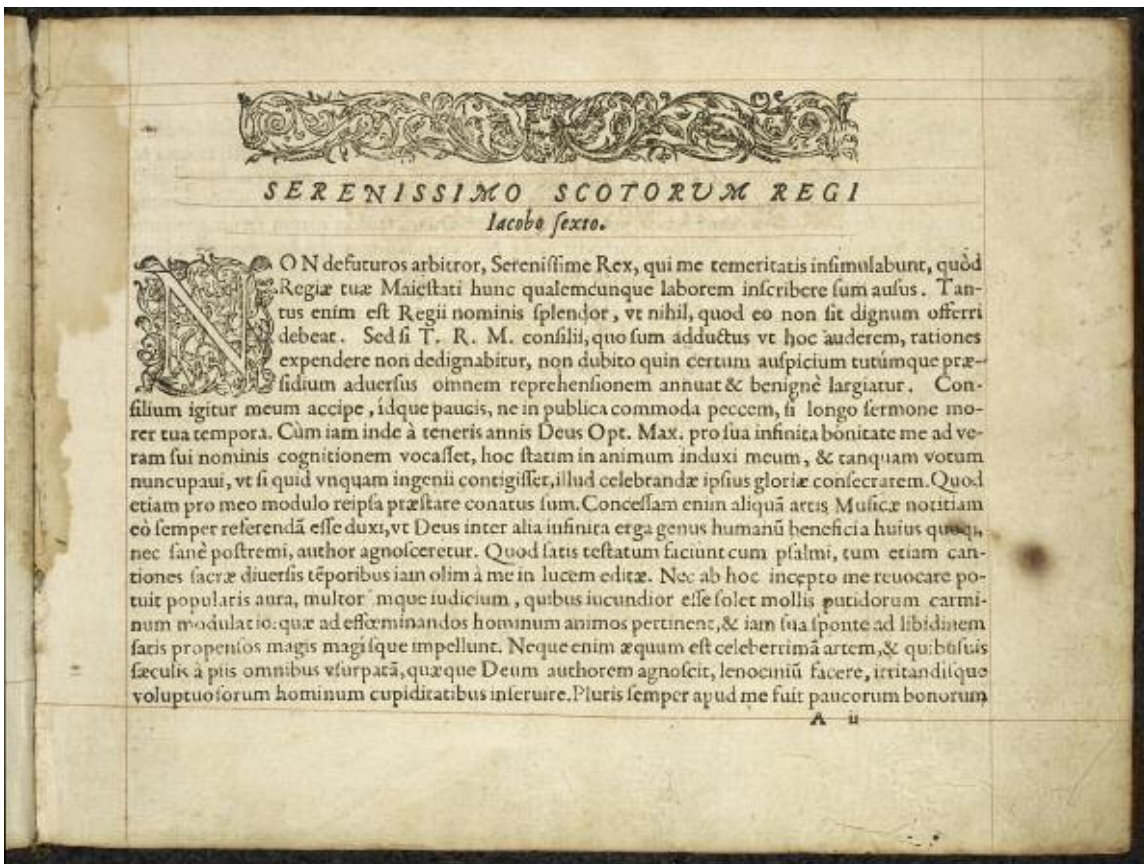 SERENISSIMO SCOTORUM REGI
Iacobo sexto.
NON defuturos arbitror, Serenissime Rex, qui me temeritatis insimulabunt, quòd
Regiæ tuæ Maiestati hunc qualemcunque laborem inscribere sum ausus. Tan-
tus enim est Regii nominis splendor, vt nihil, quod eo non sit dignum offerri
debeat. Sed si T. R. M. consilii, quo sum adductus vt hoc auderem, rationes
expendere non dedignabitur, non dubito quin certum auspicium tutúmque præ-
sidium aduersus omnem reprehensionem annuat & benignè largiatur. Con-
silium igitur meum accipe, idque paucis, ne in publica commoda peccem, si longo sermone mo-
rer tua tempora. Cùm iam inde à teneris annis Deus Opt. Max. pro sua infinita bonitate me ad ve-
ram sui nominis cognitionem vocasset, hoc statim in animum induxi meum, & tanquam votum
nuncupaui, vt si quid vnquam ingenii contigisset, illud celebrandæ ipsius gloriæ consecrarem. Quod
etiam pro meo modulo reipsa præstare conatus sum. Concessam enim aliquā artis Musicæ notitiam
eò semper referendā esse duxi, vt Deus inter alia infinita erga genus humanū beneficia huius quoque,
nec sanè postremi, author agnosceretur. Quod satis testatum faciunt cum psalmi, tum etiam can-
tiones sacræ diuersis tēporibus iam olim à me in lucem editæ. Nec ab hoc incepto me reuocare po-
tuit popularis aura, multor mque iudicium, quibus iucundior esse solet mollis putidorum carmi-
num modulatio: quæ ad effœminandos hominum animos pertinent, & iam sua sponte ad libidinem
satis propensos magis magisque impellunt. Neque enim æquum est celeberrimā artem, & quibusuis
sæculis à piis omnibus vsurpatā, quæque Deum authorem agnoscit, lenociniū facere, irritandisque
voluptuosorum hominum cupiditatibus inseruire. Pluris semper apud me fuit paucorum bonorum
A ii